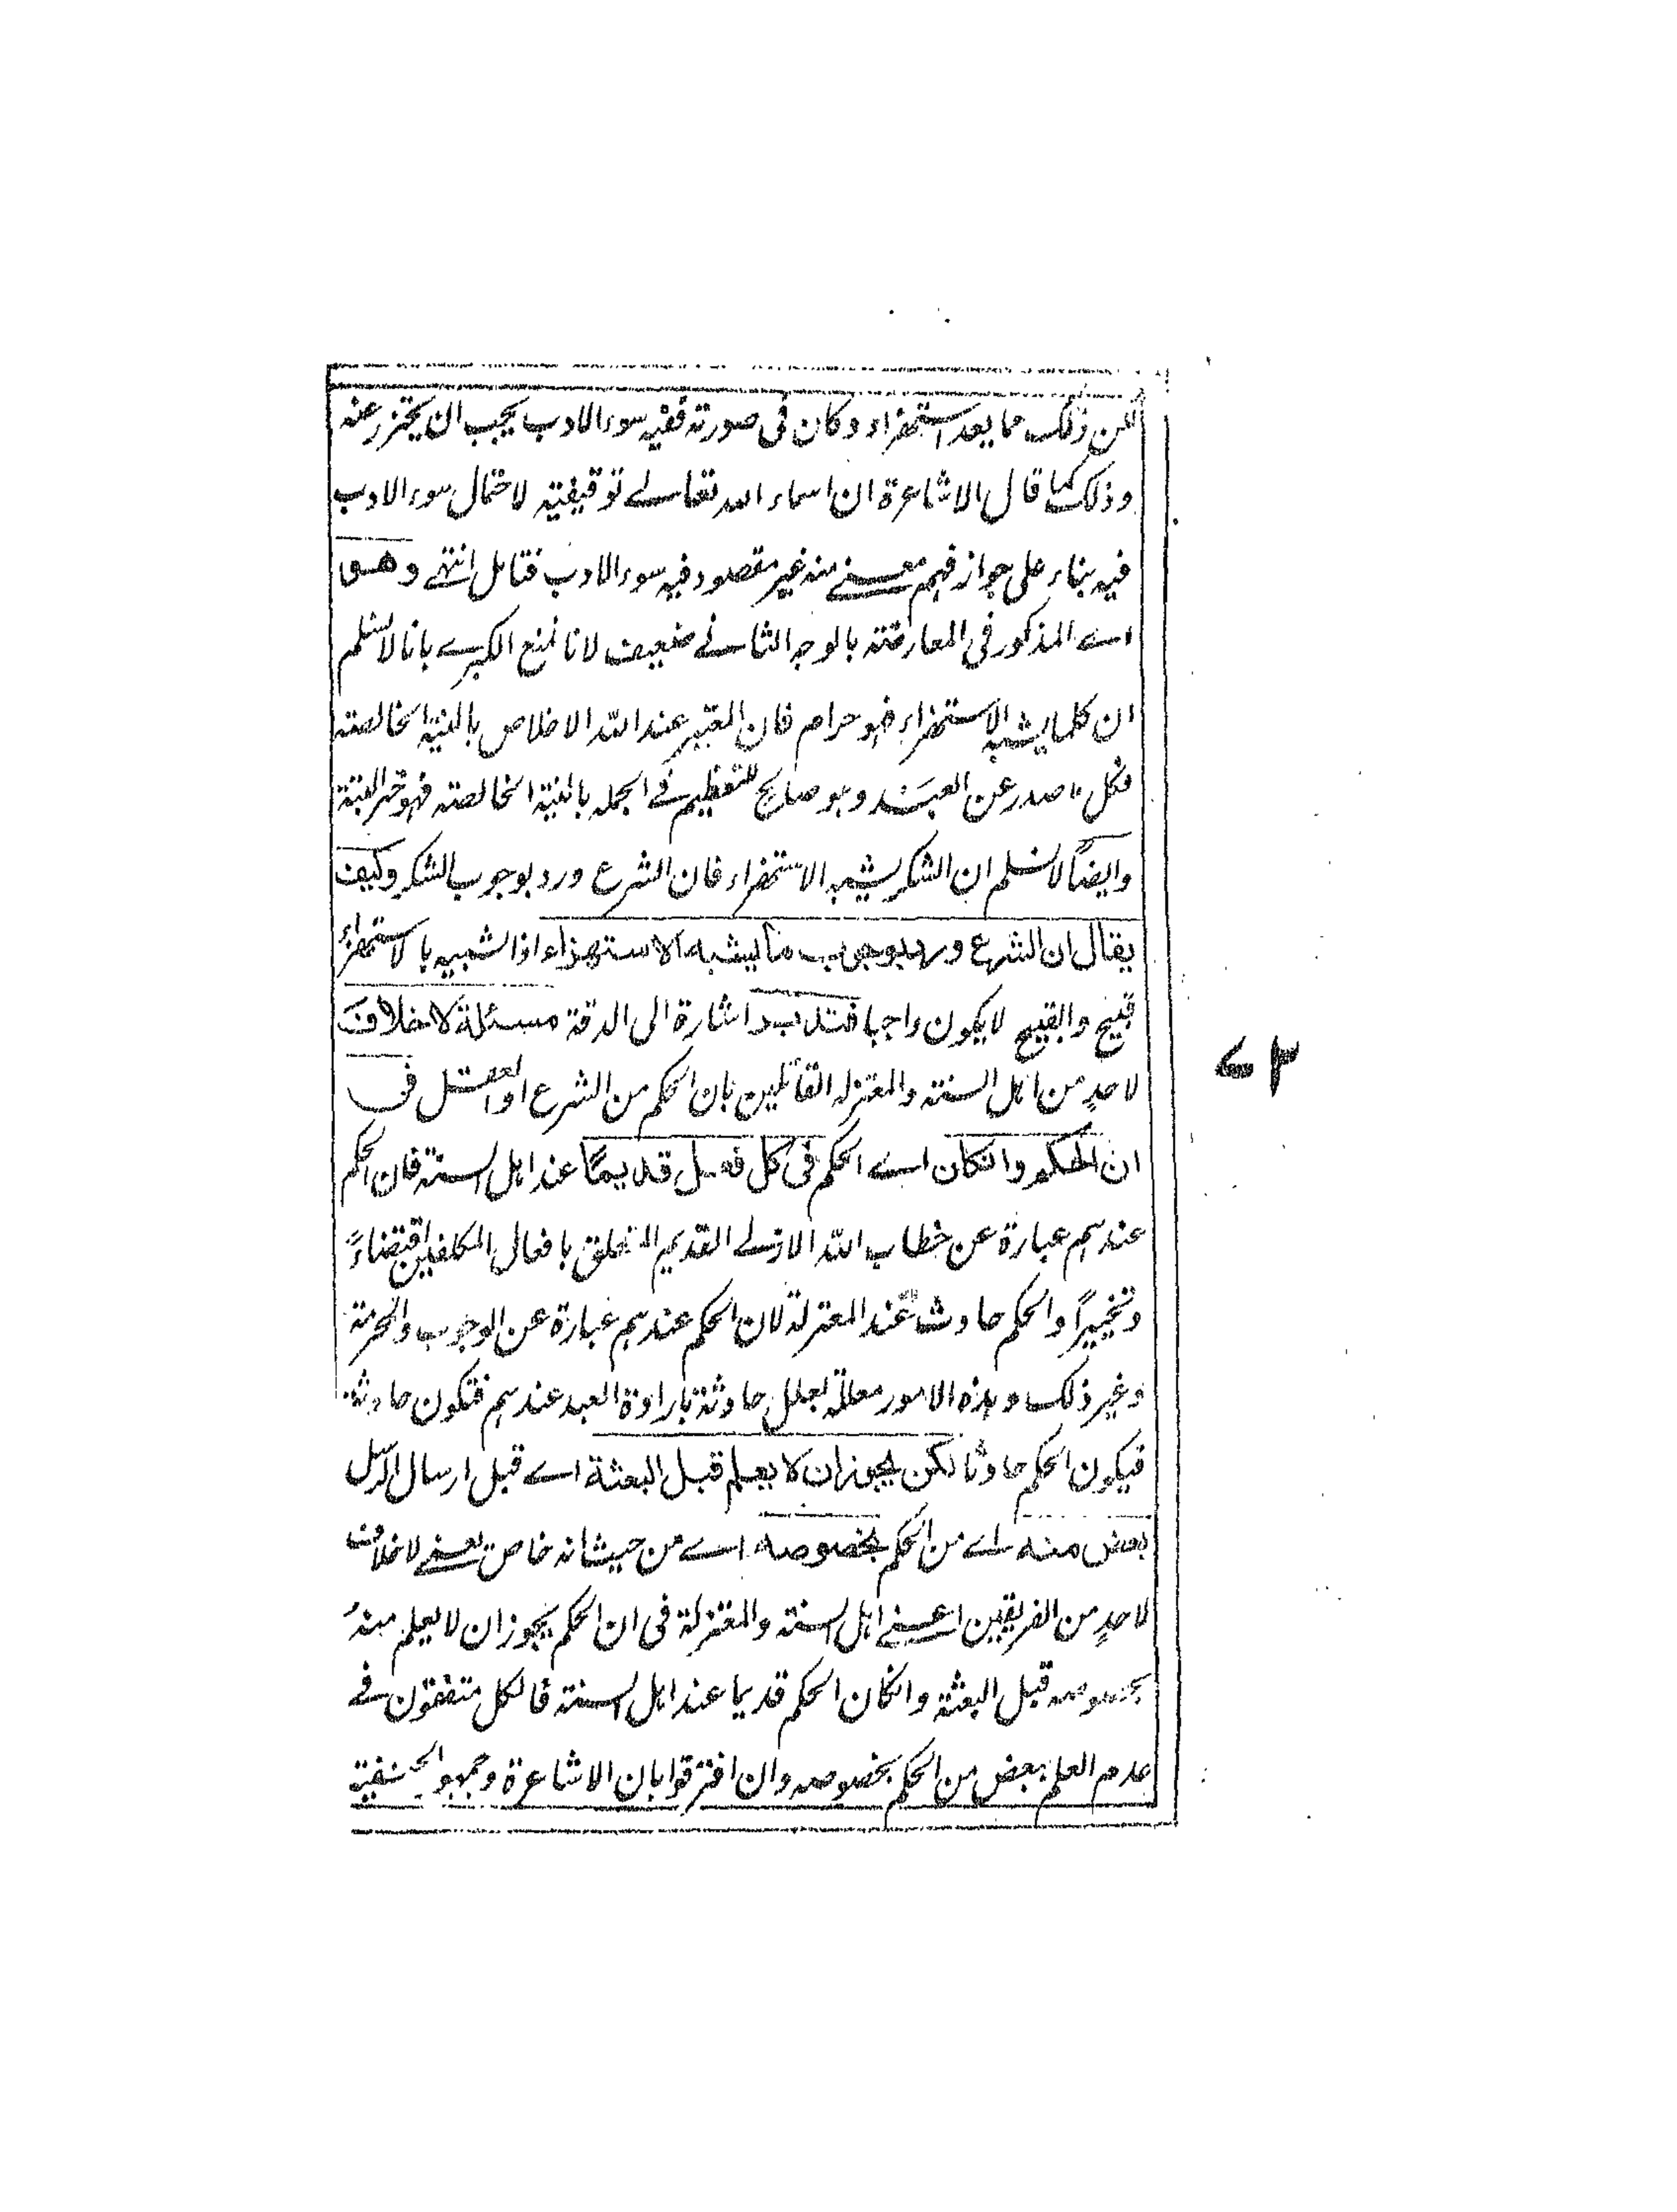 لكن ذلك مما يعد استهزاء وكان فى صورته ففيه سوء الادب يجب ان يحترز عنه
وذلك كما قال الاشاعرة ان اسماء الله تعالى توقيفية لاحتمال سوء الادب
فيه بناء على جواز فهم معنى منه غير مقصود فيه سوء الادب فتامل انتهى وهو
اى المذكور فى المعارضة بالوجه الثانى ضعيف لانا نمنع الكبرى بانا لا نسلم
ان كلما يشبه الاستهزاء فهو حرام فان المعتبر عند الله الاخلاص بالنية الخالصة
فكل ما صدر عن العبد وهو صالح للتعظيم فى الجملة بالنية الخالصة فهو
وايضاً لا نسلم ان الشكر يشبه الاستهزاء فان الشرع ورد بوجوب الشكر وكيف
يقال ان الشرع ورد بوجوب ما يشبه الاستهزاء اذ الشبيه بالاستهزاء
قبيح والقبيح لا يكون واجبا فتدبر اشارة الى الدقة مسئلة لا خلاف
لاحدٍ من اهل السنة والمعتزلة القائلين بان الحكم من الشرع او العقل فى
ان الحكم وان كان اى الحكم فى كل فعل قديماً عند اهل السنة فان الحكم
عندهم عبارة عن خطاب الله الازلى القديم المتعلق بافعال المكلفين اقتضاءً
وتخييراً والحكم حادث عند المعتزلة لان الحكم عندهم عبارة عن الوجوب والحرمة
وغير ذلك وهذه الامور معللة بعلل حادثة بارادة العبد عندهم فتكون حادثة
فيكون الحكم حادثا لكن يجوز ان لا يعلم قبل البعثة اى قبل ارسال الرسل
بعض منه اى من الحكم بخصوصه اى من حيث انه خاص يعنى لا خلاف
لاحدٍ من الفريقين اعنى اهل السنة والمعتزلة فى ان الحكم يجوز ان لا يعلم منه
بخصوصه قبل البعثة وان كان الحكم قديما عند اهل السنة فالكل متفقون فى
عدم العلم ببعض من الحكم بخصوصه وان افترقوا بان الاشاعرة وجمهور الحنفية